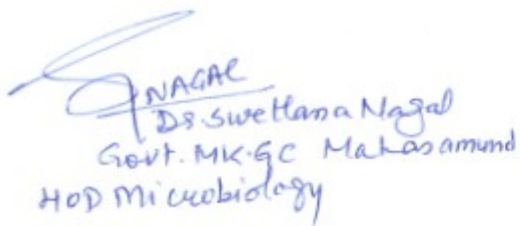 SNAGAL
Dr. Swetlana Nagal
Govt. MK.GC Mahasamund
HOD Microbiology